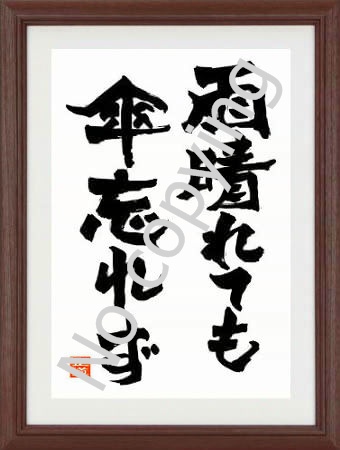 雨晴れても
傘忘れず
No copying